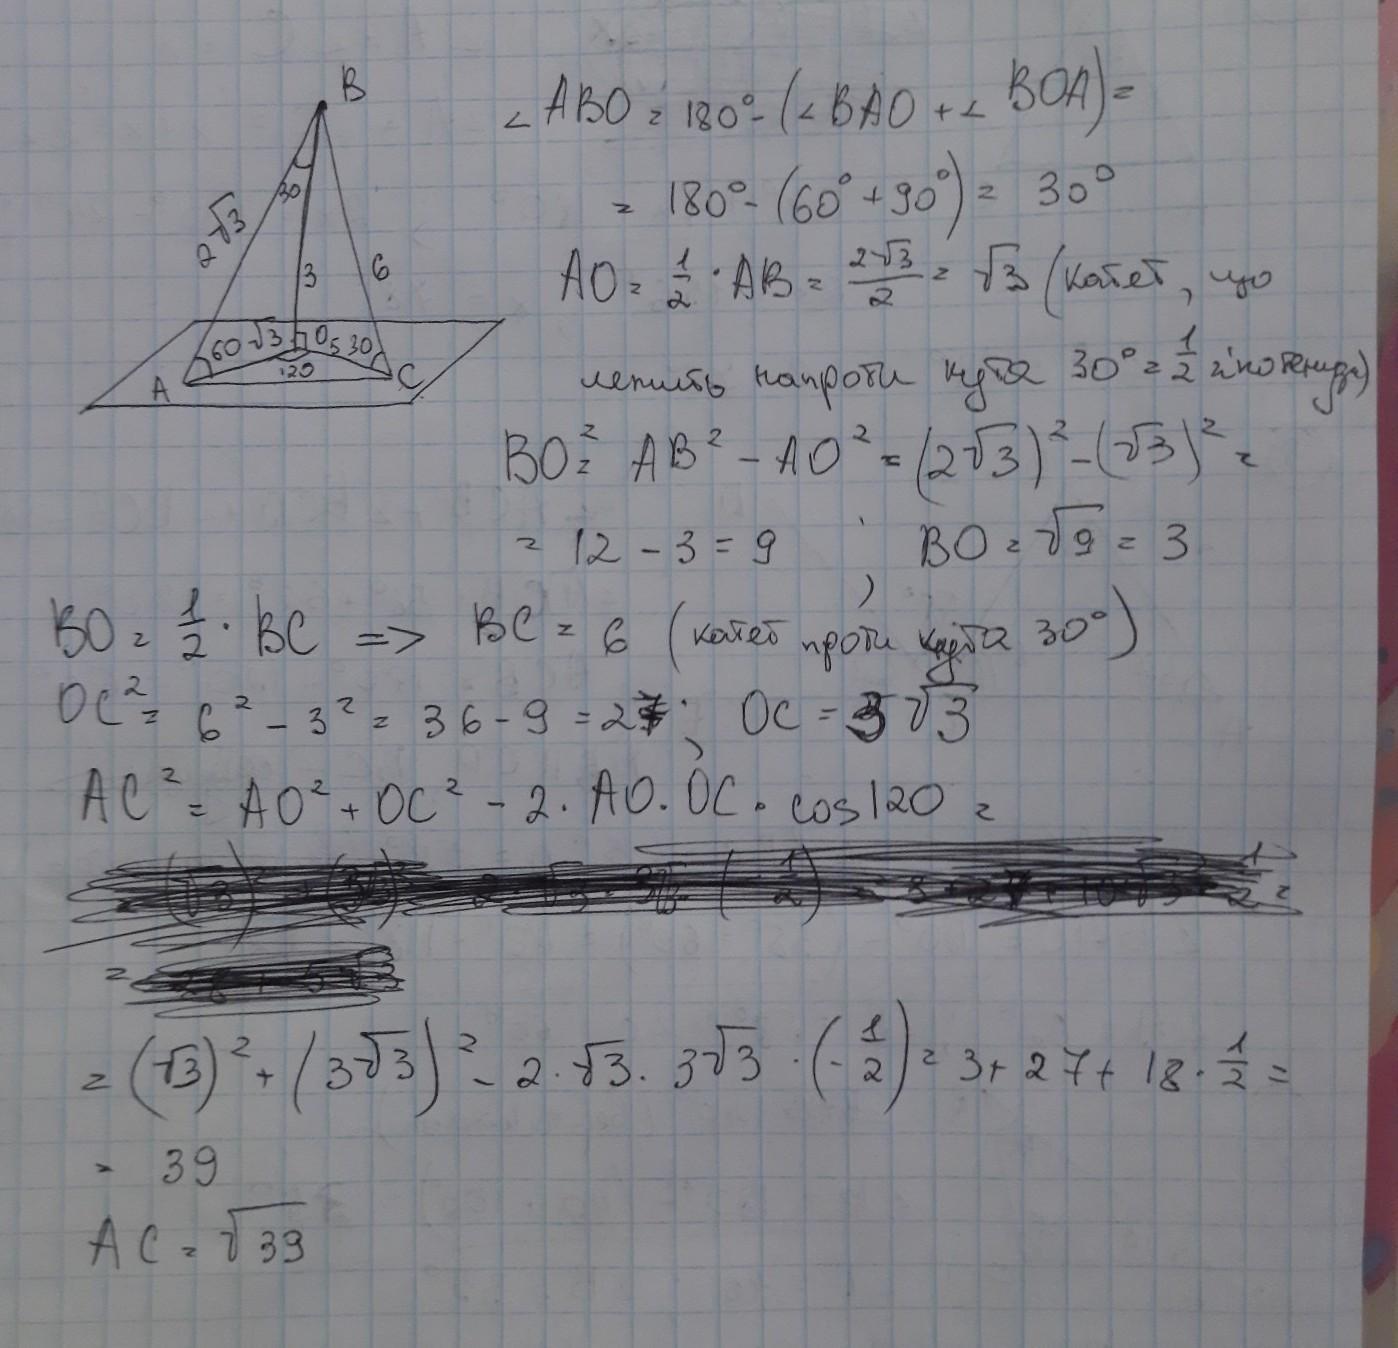 B
30
2√3
3
6
60 √3 O 5 30
A 120 C
∠ ABO = 180° - (∠ BAO + ∠ BOA) =
= 180° - (60° + 90°) = 30°
AO = 1/2 · AB = 2√3/2 = √3 (катет, що
лежить напроти кута 30° = 1/2 гіпотенузи)
BO² = AB² - AO² = (2√3)² - (√3)² =
= 12 - 3 = 9 ; BO = √9 = 3
BO = 1/2 · BC => BC = 6 (катет проти кута 30°)
OC² = 6² - 3² = 36 - 9 = 27 ; OC = 3√3
AC² = AO² + OC² - 2 · AO · OC · cos 120 =
= (√3)² + (3√3)² - 2 · √3 · 3√3 · (-1/2) = 3 + 27 + 18 · 1/2 =
= 39
AC = √39